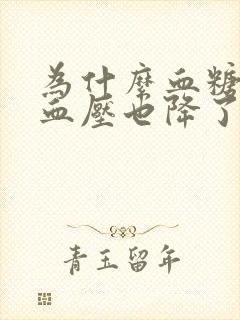 為什麼血糖
血壓也降了
青玉留年